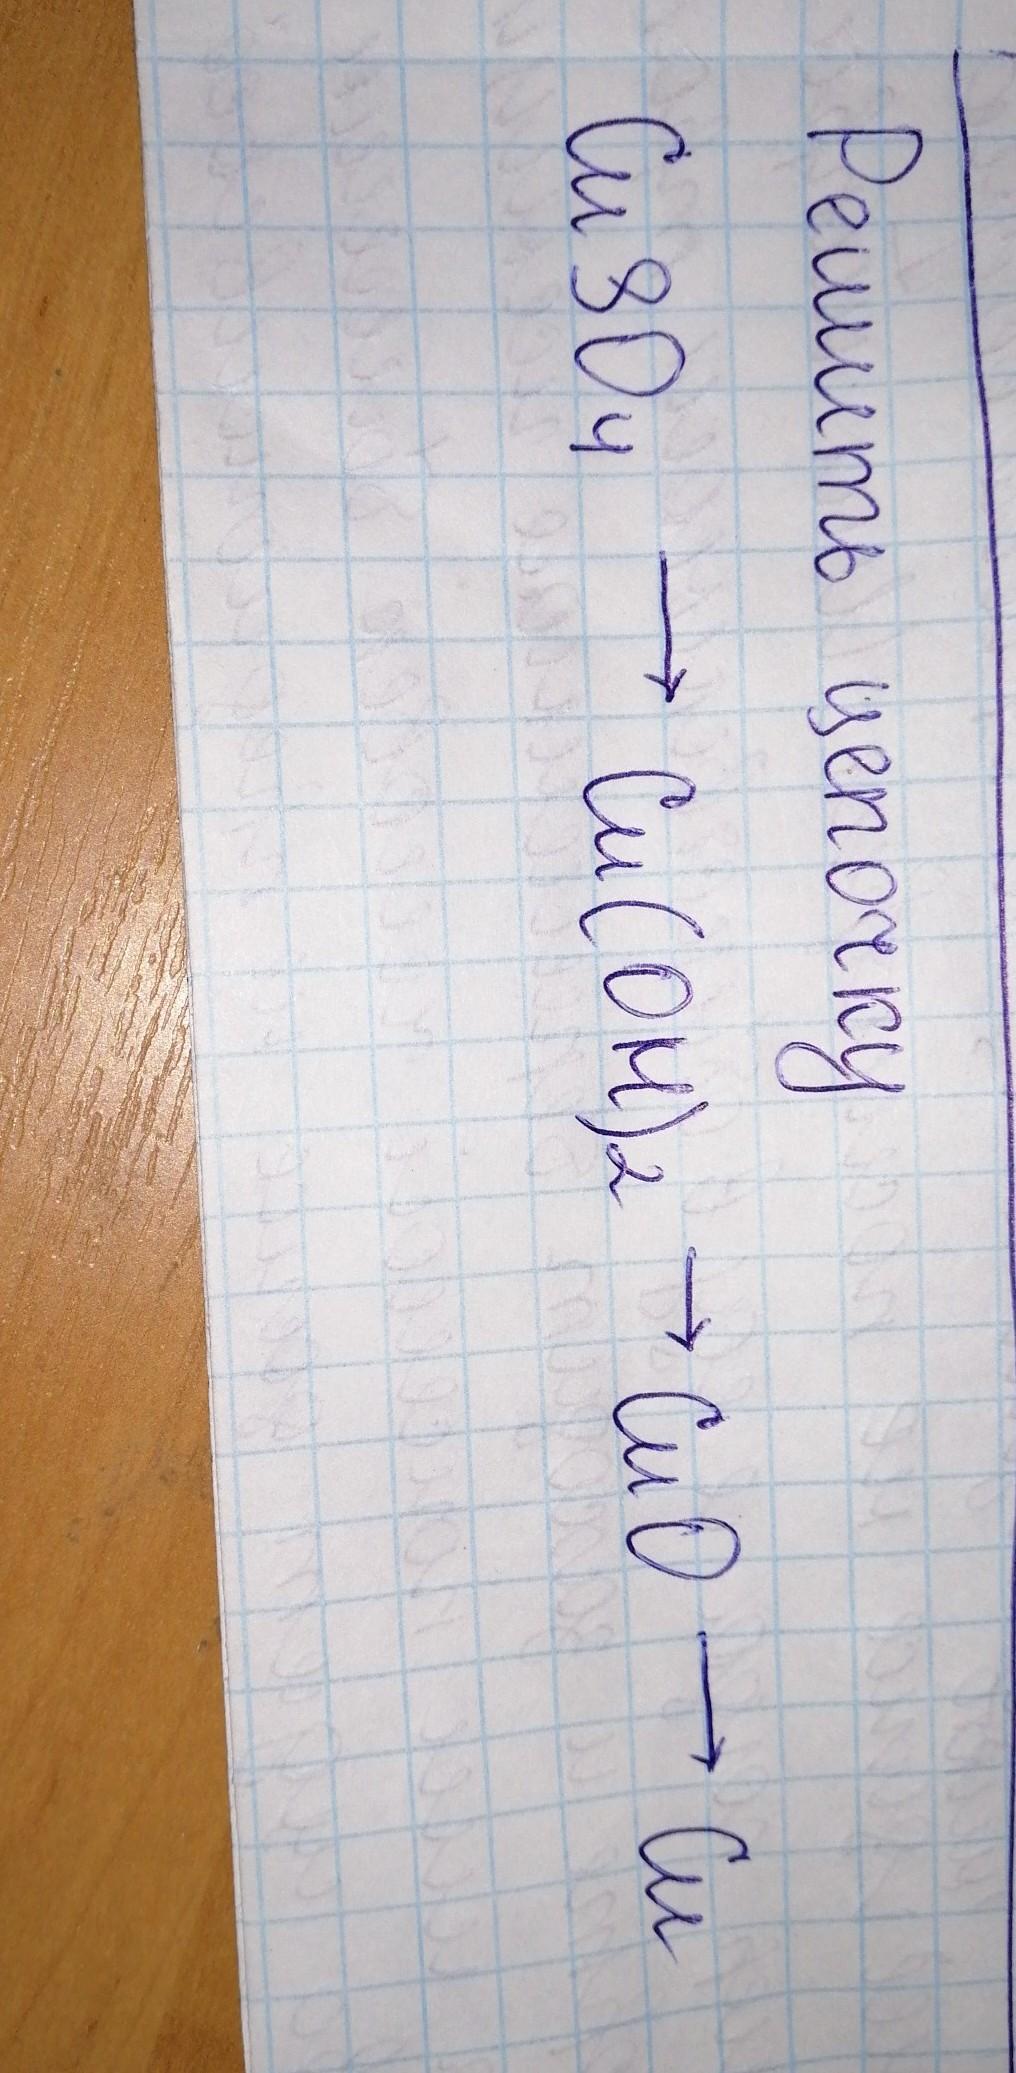 Решить цепочку
CuSO4 → Cu(OH)2 → CuO → Cu